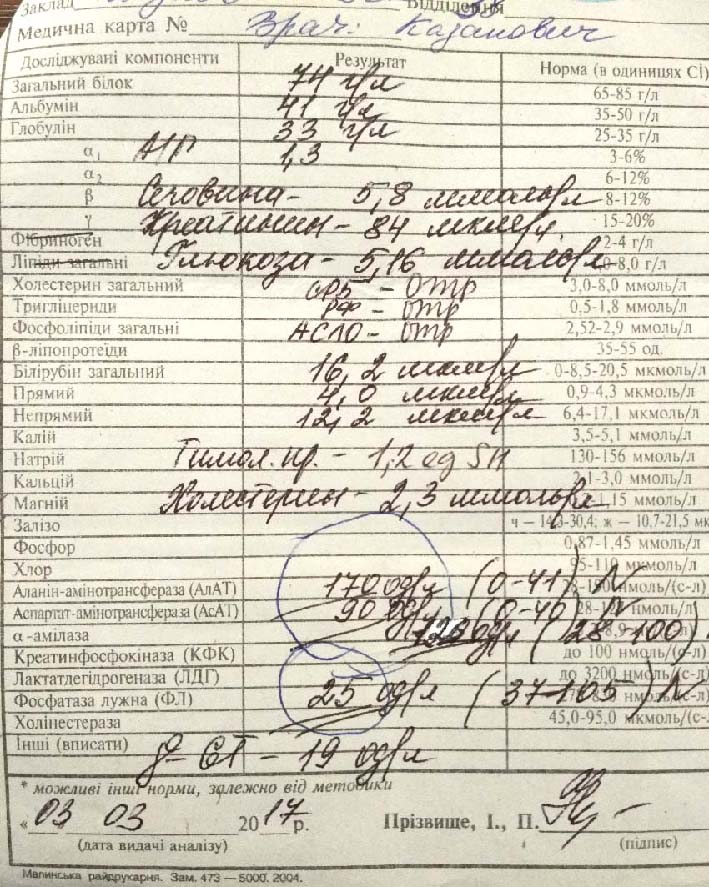 Заклад Відділення
Медична карта № Врач: Казанович
Досліджувані компоненти Результат Норма (в одиницях СІ)
Загальний білок 74 г/л 65-85 г/л
Альбумін 41 г/л 35-50 г/л
Глобулін 33 г/л 25-35 г/л
α1 А/Г 1,3 3-6%
α2 6-12%
β Сечовина - 5,8 ммоль/л 8-12%
γ Креатинин - 84 мкм/л 15-20%
Фібриноген 2-4 г/л
Ліпіди загальні Глюкоза - 5,16 ммоль/л 0-8,0 г/л
Холестерин загальний СРБ - отр 3,0-8,0 ммоль/л
Тригліцериди РФ - отр 0,5-1,8 ммоль/л
Фосфоліпіди загальні АСЛО - отр 2,52-2,9 ммоль/л
β-ліпопротеїди 35-55 од.
Білірубін загальний 16,2 мкм/л 0-8,5-20,5 мкмоль/л
Прямий 4,0 мкм/л 0,9-4,3 мкмоль/л
Непрямий 12,2 мкм/л 6,4-17,1 мкмоль/л
Калій 3,5-5,1 ммоль/л
Натрій Тимол. пр. - 1,2 ед SH 130-156 ммоль/л
Кальцій 2,1-3,0 ммоль/л
Магній Холестерин - 2,3 ммоль/л 15 ммоль/л
Залізо ч — 14,3-30,4; ж — 10,7-21,5 мк
Фосфор 0,87-1,45 ммоль/л
Хлор 95-110 ммоль/л
Аланін-амінотрансфераза (АлАТ) 170 од/л (0-41) N нмоль/(с-л)
Аспартат-амінотрансфераза (АсАТ) 90 од/л (0-40) N 28-12 нмоль/(с-л)
α-амілаза 120 од/л (28-100)
Креатинфосфокіназа (КФК) до 100 нмоль/(с-л)
Лактатлегідрогеназа (ЛДГ) до 3200 нмоль/(с-л)
Фосфатаза лужна (ФЛ) 25 од/л (37-105) N нмоль/(с-л)
Холінестераза 45,0-95,0 мкмоль/(с-л)
Інші (вписати) γ-GT - 19 од/л
* можливі інші норми, залежно від методики
« 03 03 2017 р. Прізвище, І., П.
(дата видачі аналізу) (підпис)
Малинська райдрукарня. Зам. 473 — 5000. 2004.